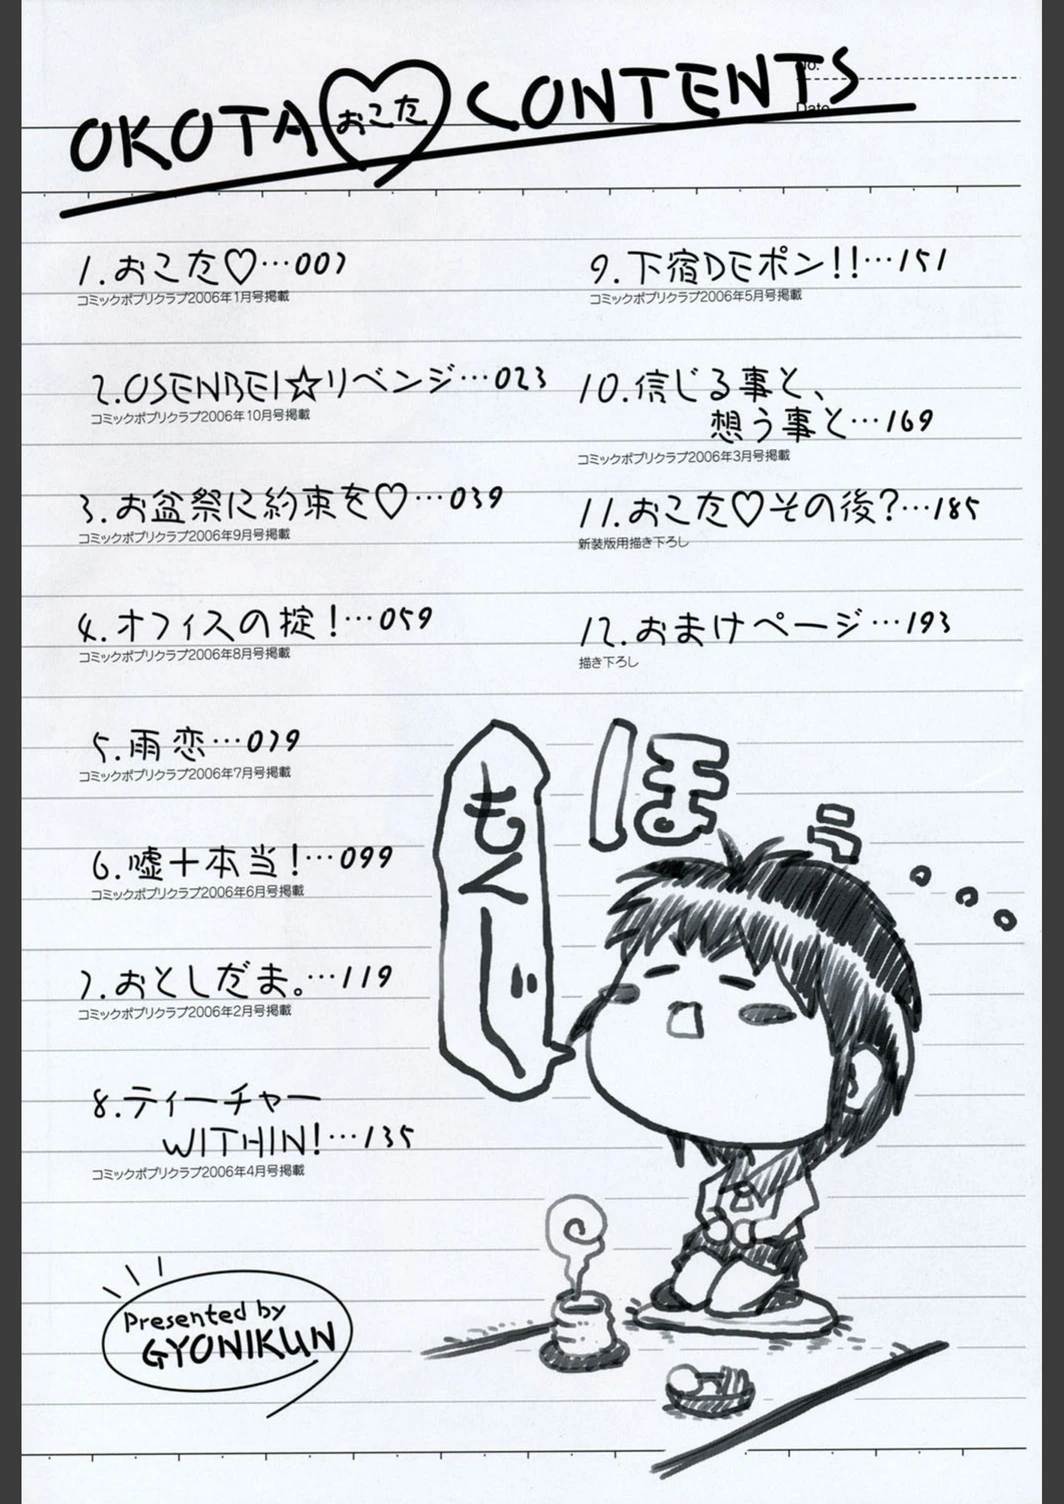 OKOTA おこた CONTENTS
No.
Date
1.おこた♡…007
コミックポプリクラブ2006年1月号掲載
2.OSENBEI☆リベンジ…023
コミックポプリクラブ2006年10月号掲載
3.お盆祭に約束を♡…039
コミックポプリクラブ2006年9月号掲載
4.オフィスの掟!…059
コミックポプリクラブ2006年8月号掲載
5.雨恋…079
コミックポプリクラブ2006年7月号掲載
6.嘘+本当!…099
コミックポプリクラブ2006年6月号掲載
7.おとしだま。…119
コミックポプリクラブ2006年2月号掲載
8.ティーチャー
WITHIN!…135
コミックポプリクラブ2006年4月号掲載
9.下宿DEポン!!…151
コミックポプリクラブ2006年5月号掲載
10.信じる事と、
想う事と…169
コミックポプリクラブ2006年3月号掲載
11.おこた♡その後?…185
新装版用描き下ろし
12.おまけページ…193
描き下ろし
ほぅ
もくーじ
Presented by
GYONIKUN